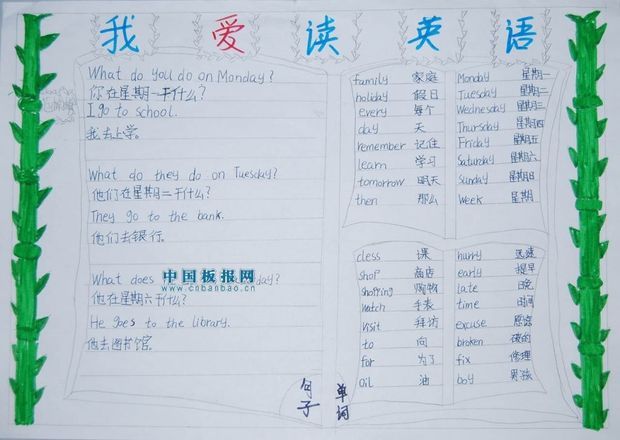 我爱读英语
What do you do on Monday?
你在星期一干什么?
I go to school.
我去上学。
What do they do on Tuesday?
他们在星期二干什么?
They go to the bank.
他们去银行。
What does
day?
他在星期六干什么?
He goes to the library.
他去图书馆。
中国板报网
www.cnbanbao.cn
句子
family 家庭
holiday 假日
every 每个
day 天
remember 记住
learn 学习
tomorrow 明天
then 那么
Monday 星期一
Tuesday 星期二
Wednesday 星期三
Thursday 星期四
Friday 星期五
Saturday 星期六
Sunday 星期日
Week 星期
class 课
shop 商店
shopping 购物
watch 手表
visit 拜访
to 向
for 为了
oil 油
hurry 迅速
early 提早
late 晚
time 时间
excuse 原谅
broken 破的
fix 修理
boy 男孩
单词